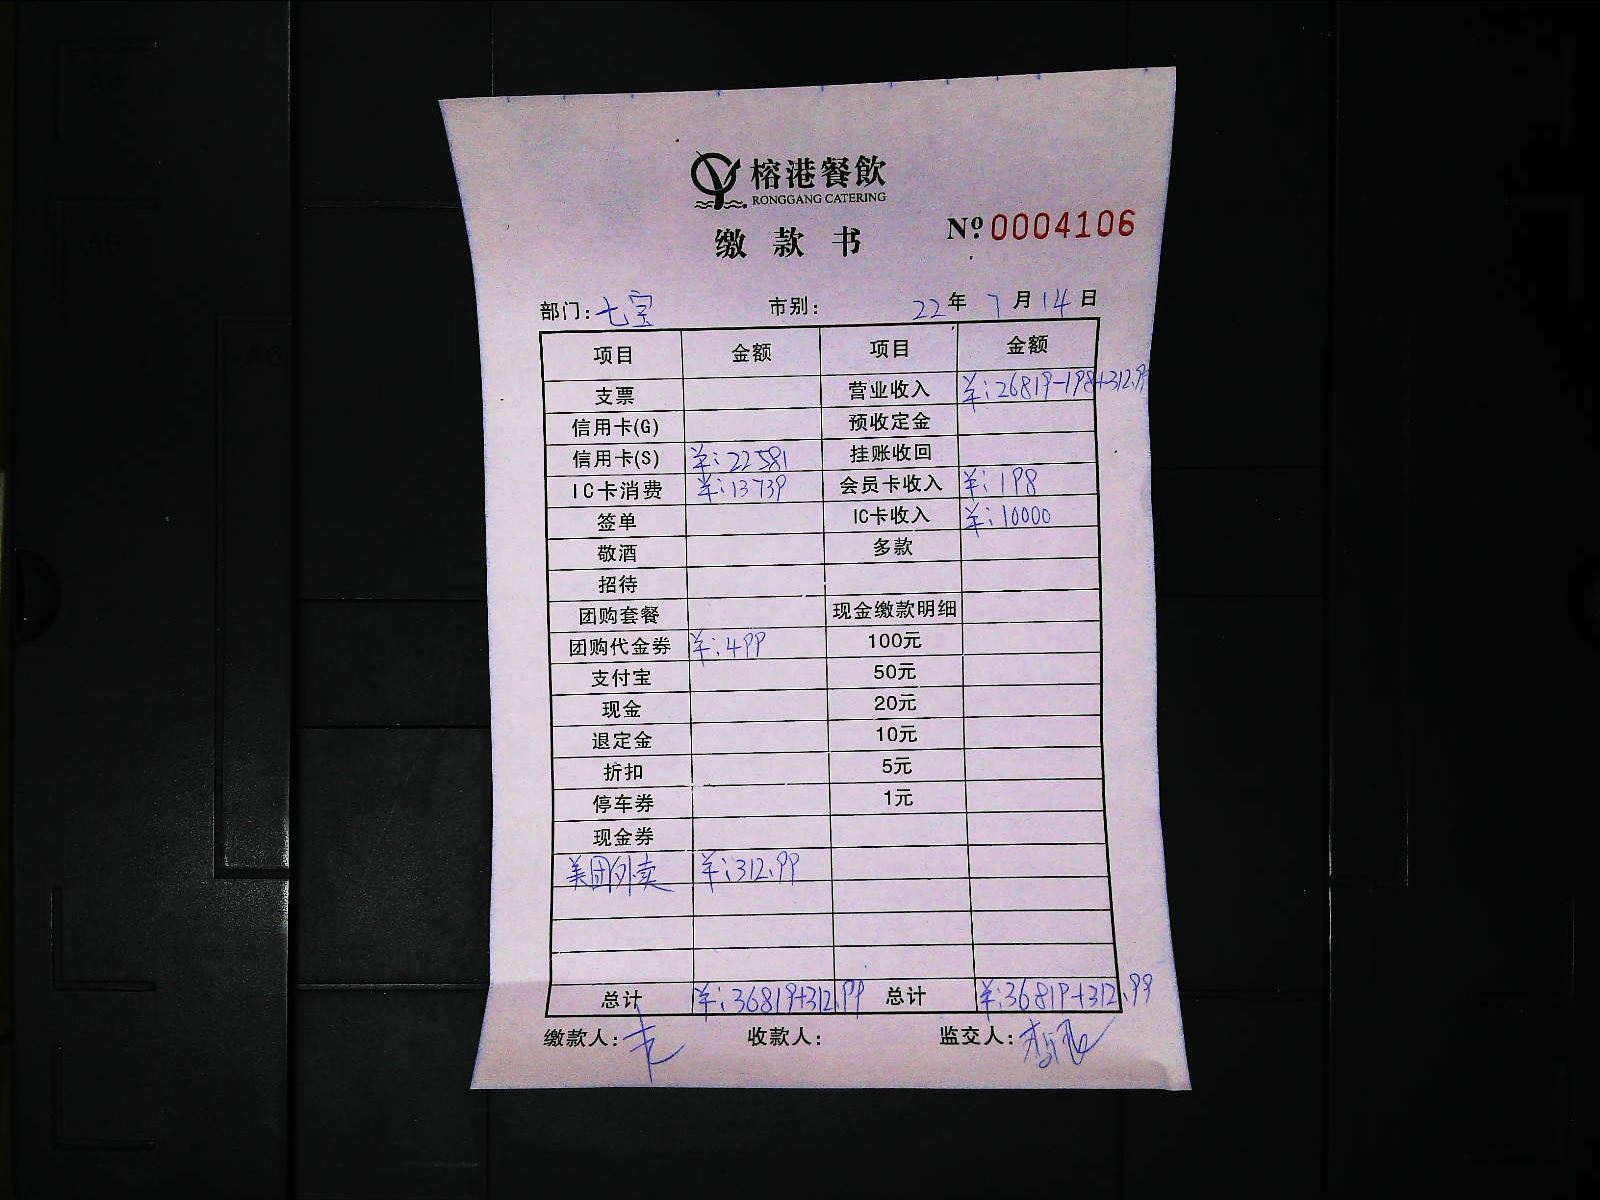 榕港餐飲
RONGGANG CATERING
缴款书 Nº 0004106
部门: 七宝 市别: 22年 7月 14日
项目 金额 项目 金额
支票 营业收入 ¥:26819-198+312.99
信用卡(G) 预收定金
信用卡(S) ¥:22581 挂账收回
IC卡消费 ¥:13739 会员卡收入 ¥:198
签单 IC卡收入 ¥:10000
敬酒 多款
招待
团购套餐 现金缴款明细
团购代金券 ¥:499 100元
支付宝 50元
现金 20元
退定金 10元
折扣 5元
停车券 1元
现金券
美团外卖 ¥:312.99
总计 ¥:36819+312.99 总计 ¥:36819+312.99
缴款人: 收款人: 监交人: